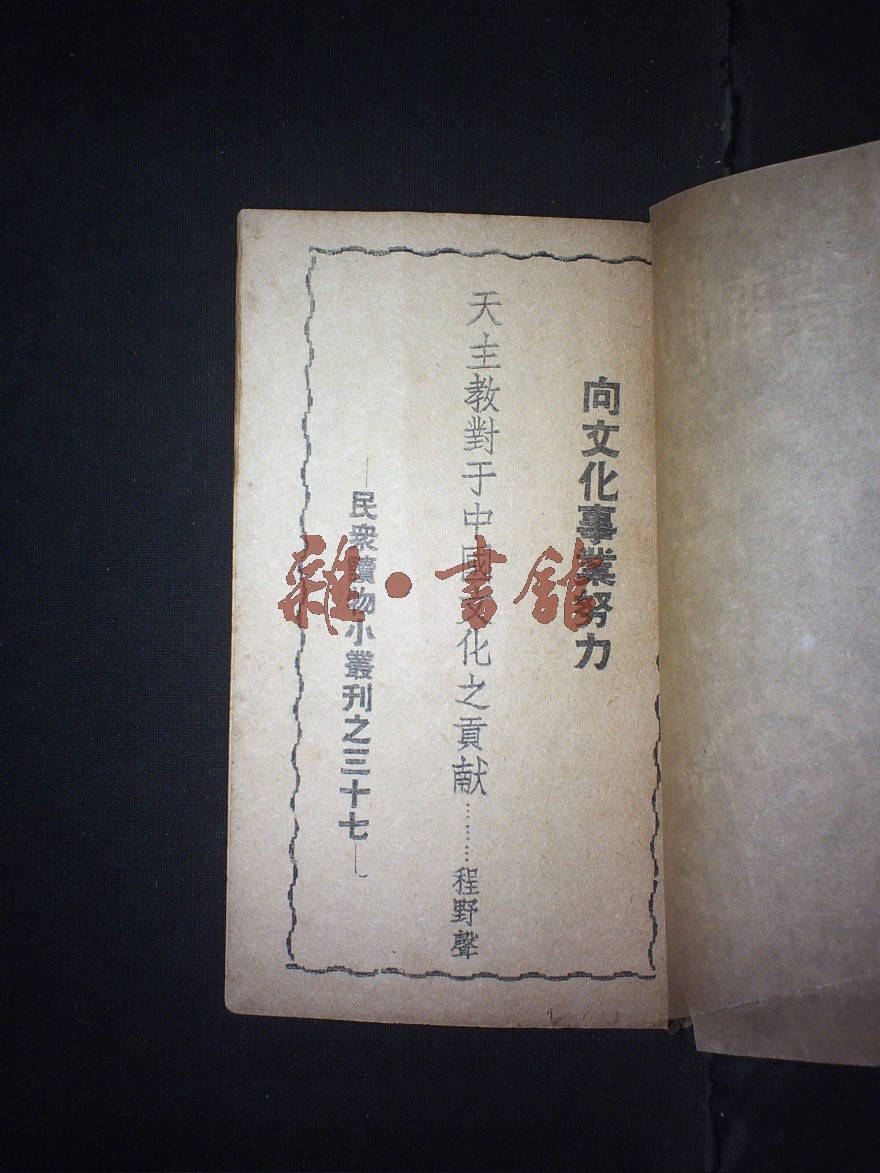 向文化事業努力
天主教對于中國文化之貢献………程野聲
民衆讀物小叢刊之三十七
雜·書館